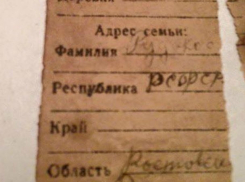 Адрес семьи:
Фамилия
Республика РСФСР
Край
Область Ростовск